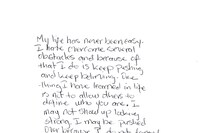 My life has never been easy.
I have overcome several
obstacles and because of
that I do is keep pushing
and keep believing. One
thing I have learned in life
is not to allow others to
define who you are. I
may not show up looking
strong, I may be pushed